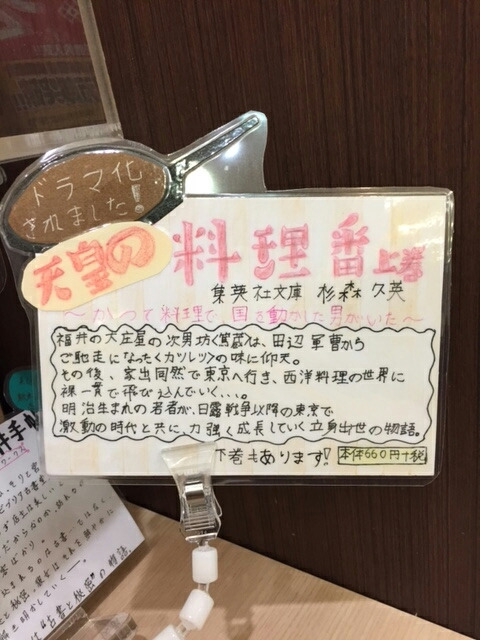 ドラマ化
されました!
天皇の料理番 上巻
集英社文庫 杉森久英
〜かつて料理で、国を動かした男がいた〜
福井の大庄屋の次男坊<篤蔵>は、田辺軍曹から
ご馳走になった<カツレツ>の味に仰天。
その後、家出同然で東京へ行き、西洋料理の世界に
裸一貫で飛び込んでいく…。
明治生まれの若者が、日露戦争以降の東京で
激動の時代と共に、力強く成長していく立身出世の物語。
下巻もあります!!
本体660円+税